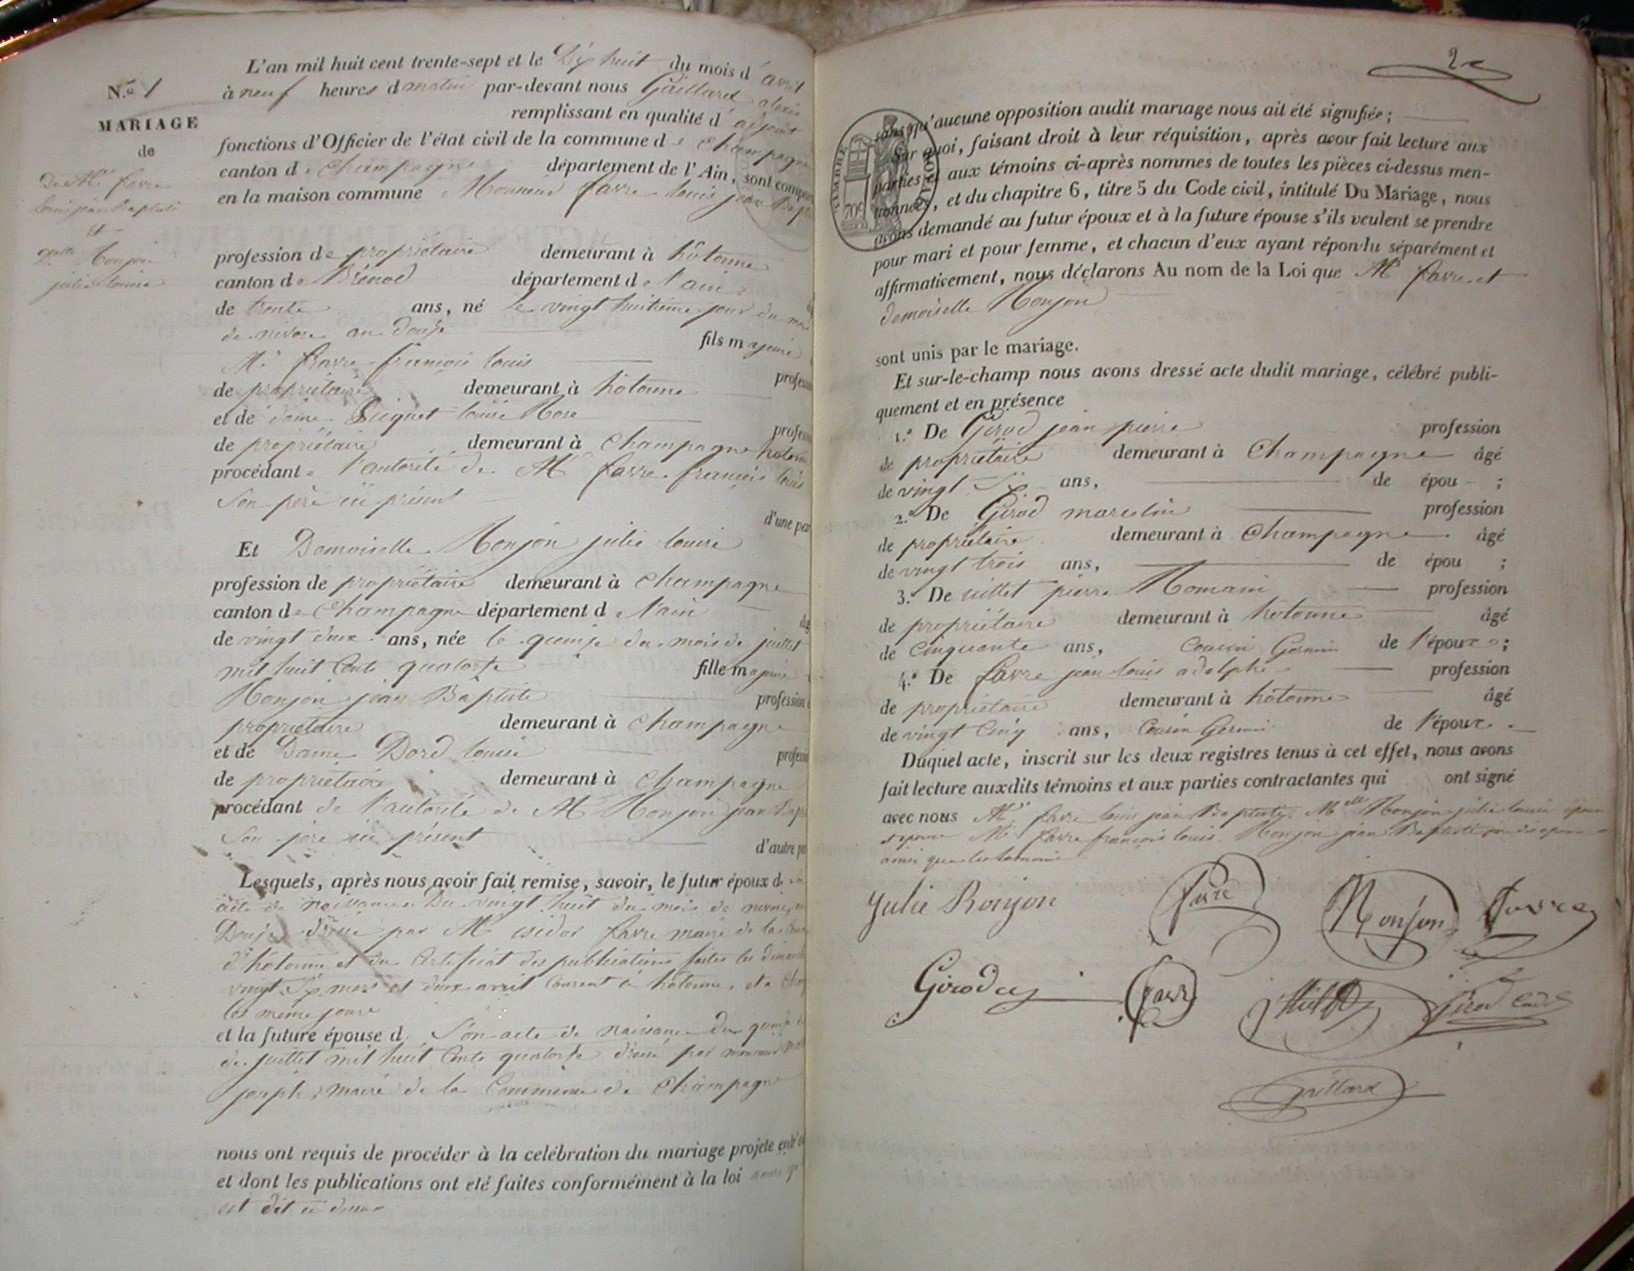 N.º 1
MARIAGE
de
de Mr favre
louis jean Baptiste
et
Delle Monjon
julie louise
L'an mil huit cent trente-sept et le Dix huit du mois d'avril
à neuf heures d matin par-devant nous Gaillard alexis
remplissant en qualité d'adjoint
fonctions d'Officier de l'état civil de la commune de Champagne
canton de Champagne département de l'Ain, sont comparus
en la maison commune Monsieur favre louis jean
profession de propriétaire demeurant à hotonne
canton de Brénod département de l'ain
de trente ans, né le vingt huitième jour du mois
de nivose an douze
fils majeur
Mr favre françois louis
de propriétaire demeurant à hotonne
et de dame louise Rose
de propriétaire demeurant à hotonne
procédant de l'autorité de Mr favre françois louis
son père ici présent
d'une part
Et Demoiselle Monjon julie louise
profession de propriétaire demeurant à Champagne
canton de Champagne département de l'ain
de vingt deux ans, née le quinze du mois de juillet
mil huit cents quatorze fille majeure
Monjon jean Baptiste profession
propriétaire demeurant à Champagne
et de Dame louise
de propriétaire demeurant à Champagne
procédant de l'autorité de Mr Monjon jean
son père ici présent
d'autre part
Lesquels, après nous avoir fait remise, savoir, le futur époux de son
acte de naissance du vingt huit du mois de nivose
Douze par Mr isidor favre maire de la
d'hotonne et du certificat des publications faites les dimanches
vingt six mars et deux avril courant à hotonne, et à
les même jours
et la future épouse d son acte de naissance du quinze
de juillet mil huit cents quatorze par monsieur
joseph maire de la Commune de Champagne
nous ont requis de procéder à la celébration du mariage projeté
et dont les publications ont été faites conformément à la loi
est dit ci dessus
2e
TIMBRE ROYAL
70c
sans qu'aucune opposition audit mariage nous ait été signifiée;
Sur quoi, faisant droit à leur réquisition, après avoir fait lecture aux
parties et aux témoins ci-après nommes de toutes les pièces ci-dessus men-
tionnées, et du chapitre 6, titre 5 du Code civil, intitulé Du Mariage, nous
avons demandé au futur époux et à la future épouse s'ils veulent se prendre
pour mari et pour femme, et chacun d'eux ayant répondu séparément et
affirmativement, nous déclarons Au nom de la Loi que Mr favre et
demoiselle Monjon
sont unis par le mariage.
Et sur-le-champ nous avons dressé acte dudit mariage, célébré publi-
quement et en présence
1.º De Girod jean pierre profession
de propriétaire demeurant à Champagne âgé
de vingt six ans, de épou ;
2.º De Girod marcelin profession
de propriétaire demeurant à Champagne âgé
de vingt trois ans, de épou ;
3.º De juillet pierre Romain profession
de propriétaire demeurant à hotonne âgé
de cinquante ans, cousin Germain de l'époux ;
4.º De favre jean louis adolphe profession
de propriétaire demeurant à hotonne âgé
de vingt cinq ans, cousin Germain de l'époux
Duquel acte, inscrit sur les deux registres tenus à cet effet, nous avons
fait lecture auxdits témoins et aux parties contractantes qui ont signé
avec nous Mr favre louis jean Baptiste, Melle Monjon julie louise époux
et épouse Mr favre françois louis Monjon jean Baptiste
ainsi que les témoins
Julie Monjon Favre Monjon Favre
Girod Favre Girod Cadet
Gaillard